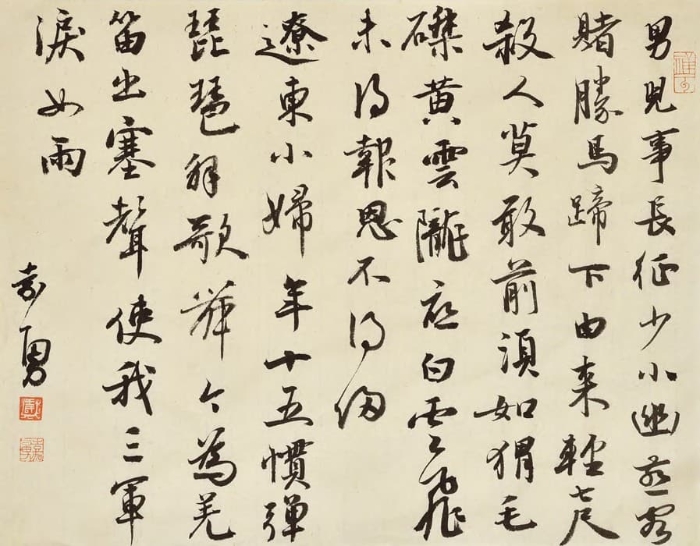 男兒事長征少小幽燕客
賭勝馬蹄下由来輕七尺
殺人莫敢前須如猬毛
磔黄雲隴底白雲飛
未得報恩不得歸
遼東小婦年十五慣彈
琵琶解歌舞今為羌
笛出塞聲使我三軍
淚如雨
勇